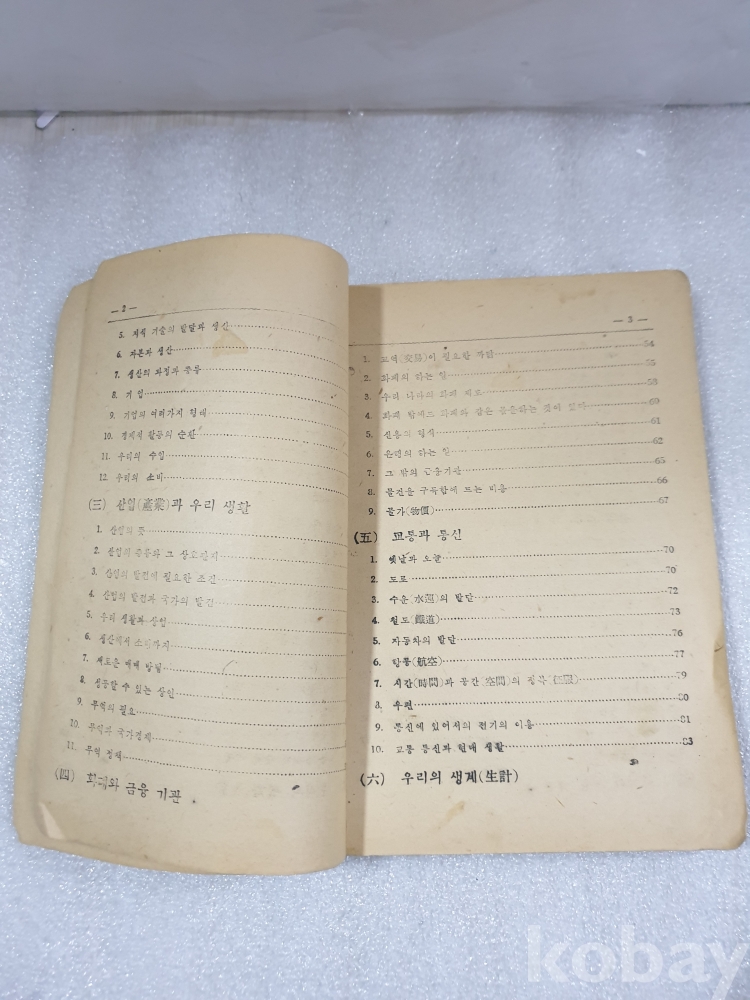 — 2 —
5. 지식 기술의 발달과 생산
6. 자본과 생산
7. 생산의 과정과 종류
8. 기 업
9. 기업의 여러가지 형태
10. 경제적 활동의 순환
11. 우리의 수입
12. 우리의 소비
(三) 산업(產業)과 우리 생활
1. 산업의 뜻
2. 산업의 종류와 그 상호관계
3. 산업의 발전에 필요한 조건
4. 산업의 발전과 국가의 발전
5. 우리 생활과 상업
6. 생산에서 소비까지
7. 새로운 매매 방법
8. 성공할 수 있는 상인
9. 무역의 필요
10. 무역과 국가경제
11. 무역 정책
(四) 화폐와 금융 기관
— 3 —
1. 교역(交易)이 필요한 까닭 54
2. 화폐의 하는 일 55
3. 우리 나라의 화폐 제도 58
4. 화폐 밖에도 화폐와 같은 것이 있다 60
5. 신용의 형식 61
6. 은행의 하는 일 62
7. 그 밖의 금융기관 65
8. 물건을 구득함에 드는 비용 66
9. 물가(物價) 67
(五) 교통과 통신
1. 옛날과 오늘 70
2. 도로 70
3. 수운(水運)의 발달 72
4. 철도(鐵道) 73
5. 자동차의 발달 76
6. 항공(航空) 77
7. 시간(時間)과 공간(空間)의 정복 79
8. 우편 80
9. 통신에 있어서의 전기의 이용 81
10. 교통 통신과 현대 생활 83
(六) 우리의 생계(生計)
kobay